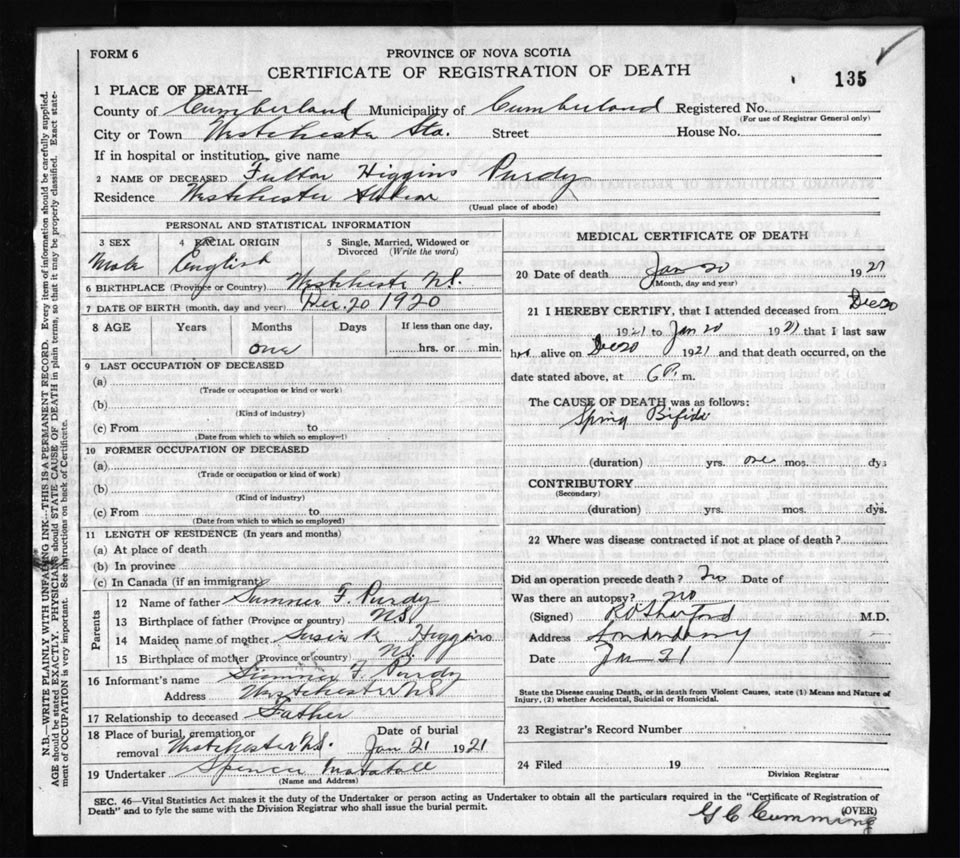 FORM 6
PROVINCE OF NOVA SCOTIA
CERTIFICATE OF REGISTRATION OF DEATH
135
1 PLACE OF DEATH—
County of Cumberland Municipality of Cumberland Registered No.
(For use of Registrar General only)
City or Town Westchester Sta. Street House No.
If in hospital or institution, give name
2 NAME OF DECEASED Fulton Higgins Purdy
Residence Westchester Station
(Usual place of abode)
PERSONAL AND STATISTICAL INFORMATION
3 SEX 4 RACIAL ORIGIN 5 Single, Married, Widowed or
Divorced (Write the word)
Male English
6 BIRTHPLACE (Province or Country) Westchester N.S.
7 DATE OF BIRTH (month, day and year) Dec. 20 1920
8 AGE Years Months Days If less than one day,
one hrs. or min.
9 LAST OCCUPATION OF DECEASED
(a)
(Trade or occupation or kind of work)
(b)
(Kind of industry)
(c) From to
(Date from which to which so employ
10 FORMER OCCUPATION OF DECEASED
(a)
(Trade or occupation or kind of work)
(b)
(Kind of industry)
(c) From to
(Date from which to which so employed)
11 LENGTH OF RESIDENCE (In years and months)
(a) At place of death
(b) In province
(c) In Canada (if an immigrant)
Parents
12 Name of father Sumner F. Purdy
13 Birthplace of father (Province or country) N.S.
14 Maiden name of mother Susie K Higgins
15 Birthplace of mother (Province or country) N.S.
16 Informant's name Sumner F Purdy
Address Westchester N.S
17 Relationship to deceased Father
18 Place of burial, cremation or Date of burial
removal Westchester N.S. Jan 21 1921
19 Undertaker Spencer
(Name and Address)
MEDICAL CERTIFICATE OF DEATH
20 Date of death Jan 20 1921
(Month, day and year)
21 I HEREBY CERTIFY, that I attended deceased from Dec 20
1921 to Jan 20 1921 that I last saw
alive on Dec 20 1921 and that death occurred, on the
date stated above, at 6 P. m.
The CAUSE OF DEATH was as follows:
Spina Bifida
(duration) yrs. one mos. dys
CONTRIBUTORY
(Secondary)
(duration) yrs. mos. dys.
22 Where was disease contracted if not at place of death?
Did an operation precede death? no Date of
Was there an autopsy? no
(Signed) M.D.
Address Londonderry
Date Jan 21
State the Disease causing Death, or in death from Violent Causes, state (1) Means and Nature of
Injury, (2) whether Accidental, Suicidal or Homicidal.
23 Registrar's Record Number
24 Filed 19
Division Registrar
SEC. 46—Vital Statistics Act makes it the duty of the Undertaker or person acting as Undertaker to obtain all the particulars required in the "Certificate of Registration of
Death" and to fyle the same with the Division Registrar who shall issue the burial permit. (OVER)
G C Cumming
N.B.—WRITE PLAINLY WITH UNFADING INK—THIS IS A PERMANENT RECORD. Every item of information should be carefully supplied.
AGE should be stated EXACTLY. PHYSICIANS should STATE CAUSE OF DEATH in plain terms, so that it may be properly classified. Exact state-
ment of OCCUPATION is very important. See instructions on back of Certificate.